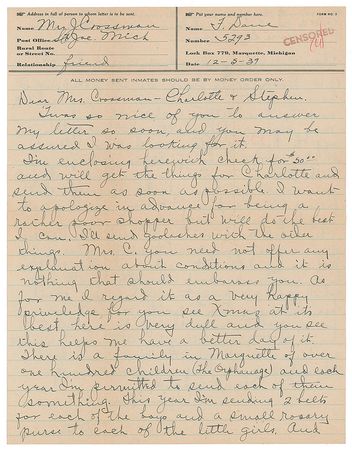 Address in full of person to whom letter is to be sent.
Name Mrs J Crossman
Post Office St Joe. Mich
Rural Route
or Street No.
Relationship friend
Put your name and number here.
FORM NO. 3
Name F. Dane
Number 5293
Lock Box 779, Marquette, Michigan
Date 12-3-37
CENSORED
ALL MONEY SENT INMATES SHOULD BE BY MONEY ORDER ONLY.
Dear Mrs. Crossman - Charlotte & Stephen.
'Twas so nice of you to answer
my letter so soon, and you may be
assured I was looking for it.
I'm enclosing herewith check for $50.00
and will get the things for Charlotte and
send them as soon as possible. I want
to apologize in advance for being a
rather poor shopper but will do the best
I can. I'll send goloshes with the other
things. Mrs. C. you need not offer any
explanation about conditions and it is
nothing that should embarass you. As
for me I regard it as a very happy
priviledge for you see Xmas at its
best here is very dull and you see
this helps me have a better day of it.
There is a family in Marquette of over
one hundred children (The Orphanage) and each
year I'm permitted to send each of them
something. This year I'm sending 2 belts
for each of the boys and a small rosary
purse to each of the little girls. And